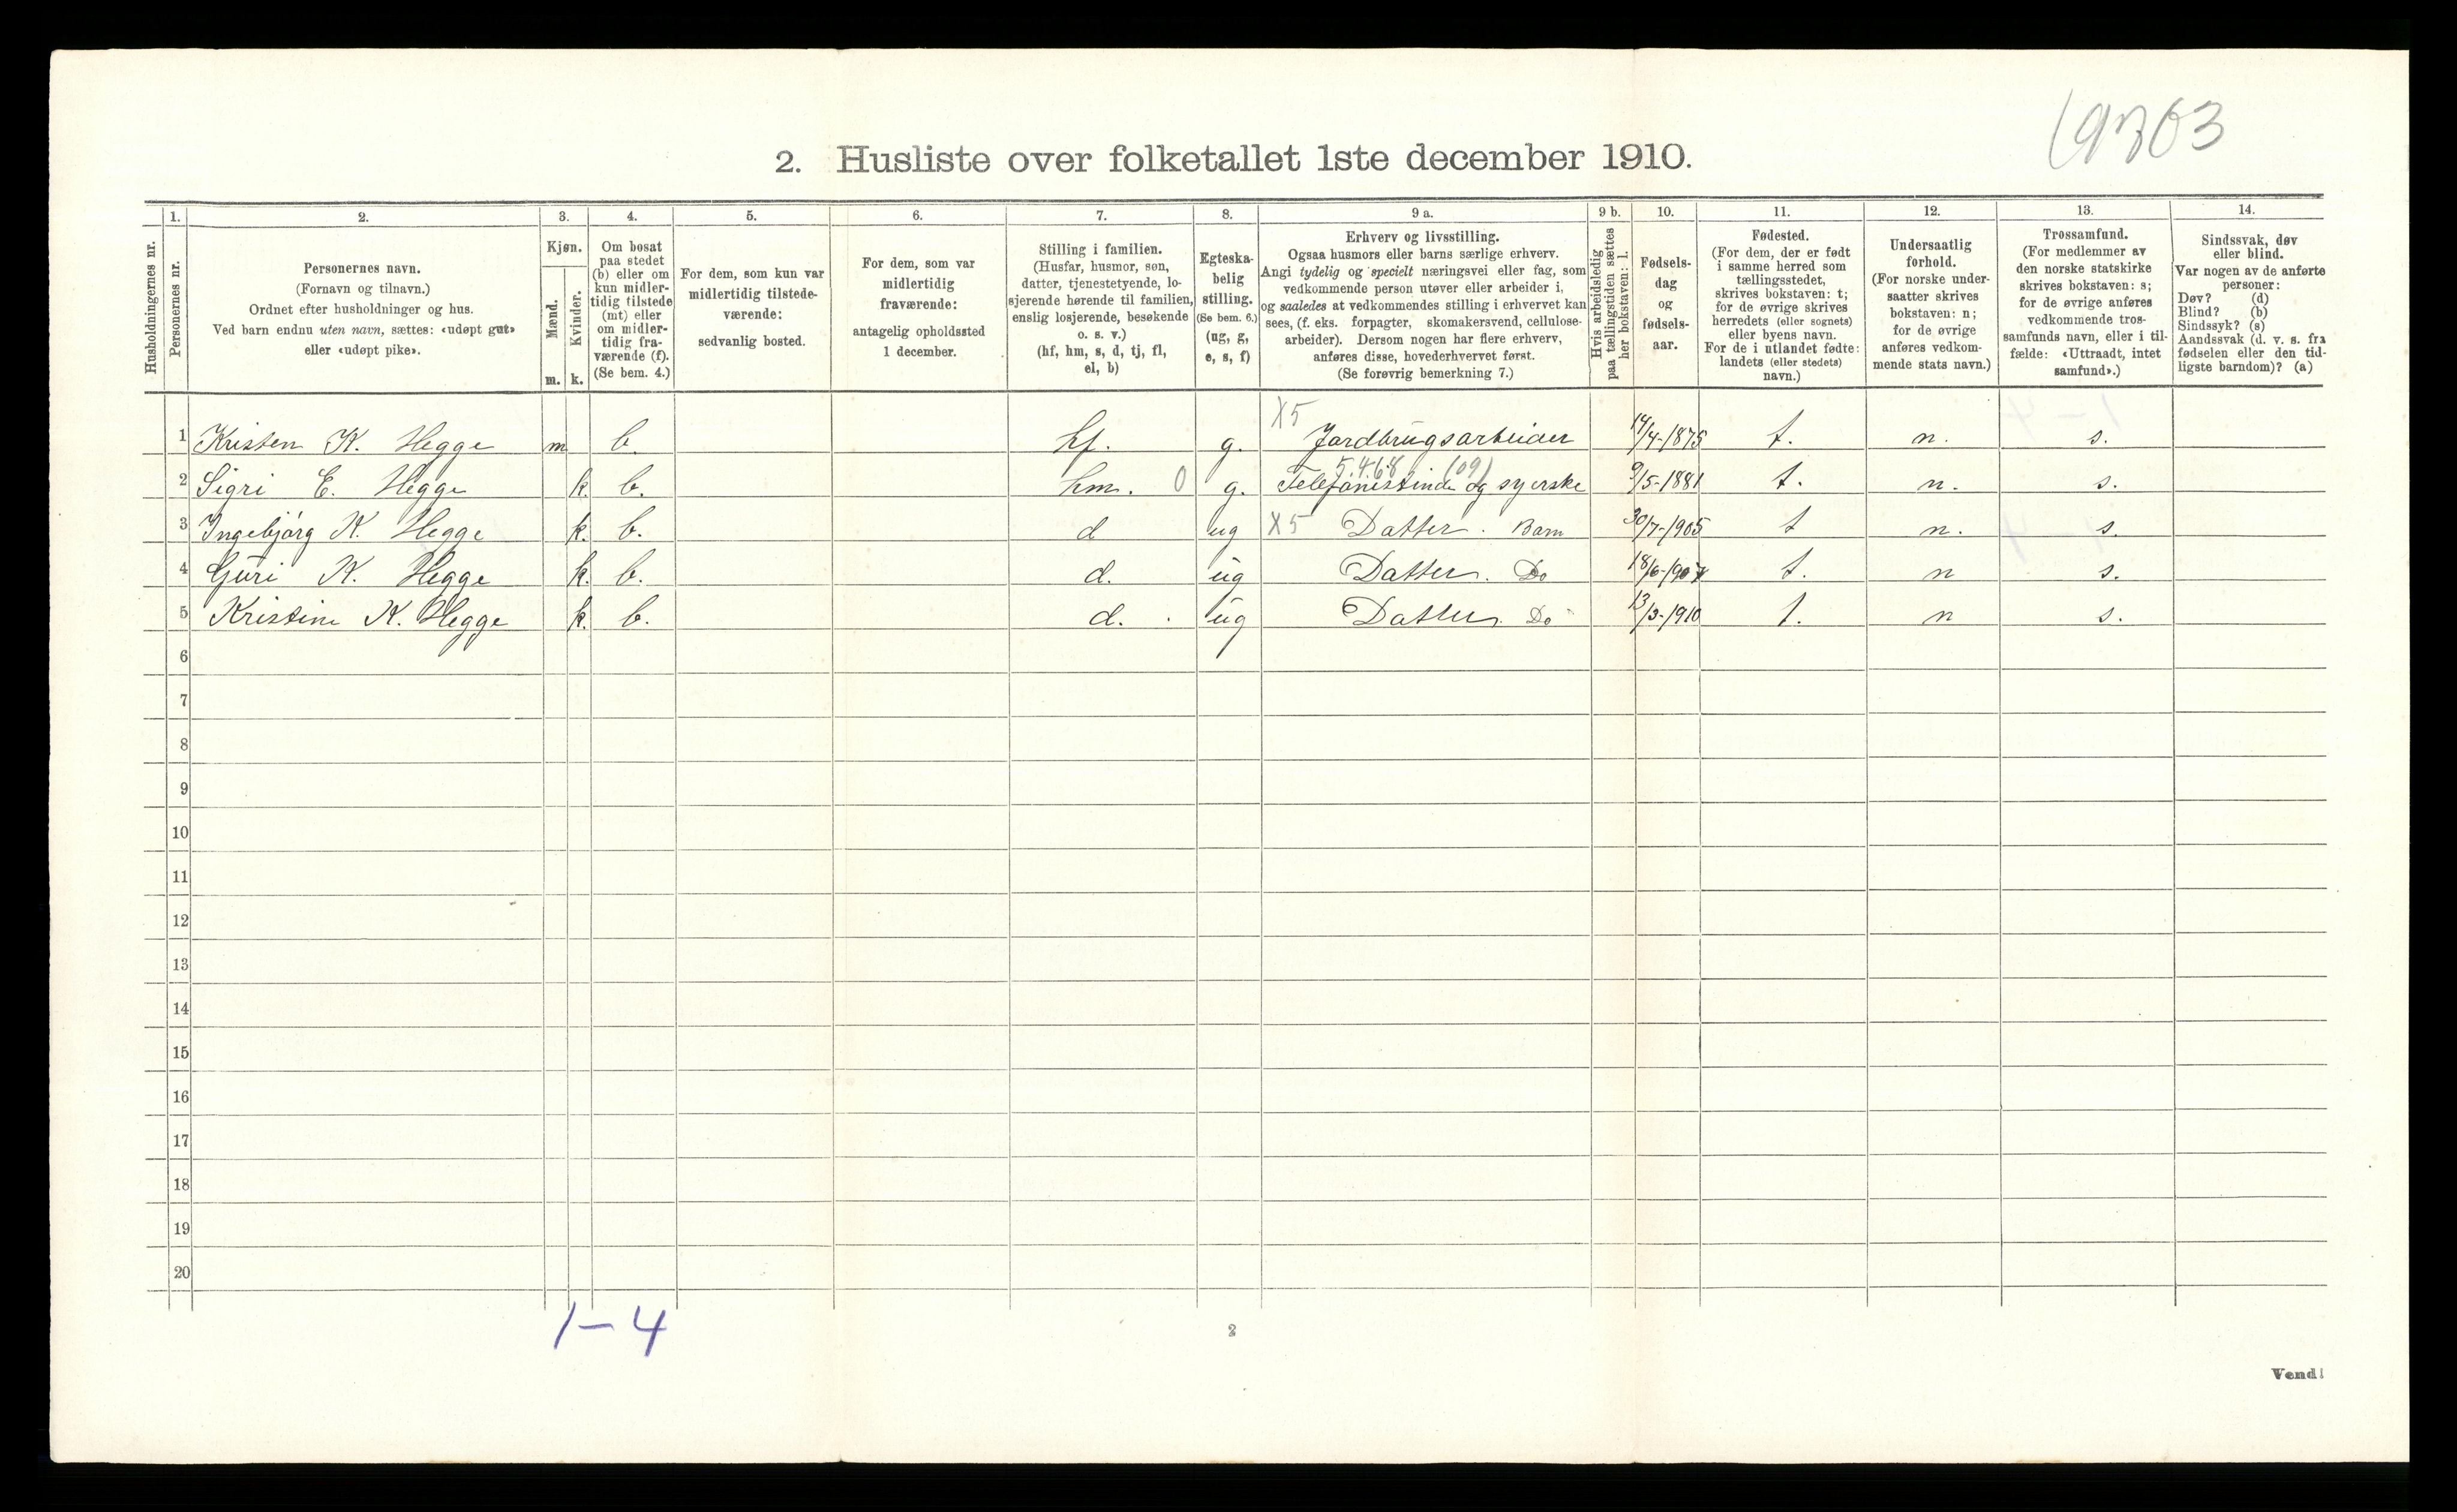 19303
2. Husliste over folketallet 1ste december 1910.
Husholdningernes nr.
1.
Personernes nr.
2.
Personernes navn.
(Fornavn og tilnavn.)
Ordnet efter husholdninger og hus.
Ved barn endnu uten navn, sættes: «udøpt gut»
eller «udøpt pike».
3.
Kjøn.
Mænd.
Kvinder.
m. k.
4.
Om bosat
paa stedet
(b) eller om
kun midler-
tidig tilstede
(mt) eller
om midler-
tidig fra-
værende (f).
(Se bem. 4.)
5.
For dem, som kun var
midlertidig tilstede-
værende:
sedvanlig bosted.
6.
For dem, som var
midlertidig
fraværende:
antagelig opholdssted
1 december.
7.
Stilling i familien.
(Husfar, husmor, søn,
datter, tjenestetyende, lo-
sjerende hørende til familien,
enslig losjerende, besøkende
o. s. v.)
(hf, hm, s, d, tj, fl,
el, b)
8.
Egteska-
belig
stilling.
(Se bem. 6.)
(ug, g,
e, s, f)
9 a.
Erhverv og livsstilling.
Ogsaa husmors eller barns særlige erhverv.
Angi tydelig og specielt næringsvei eller fag, som
vedkommende person utøver eller arbeider i,
og saaledes at vedkommendes stilling i erhvervet kan
sees, (f. eks. forpagter, skomakersvend, cellulose-
arbeider). Dersom nogen har flere erhverv,
anføres disse, hovederhvervet først.
(Se forøvrig bemerkning 7.)
9 b.
Hvis arbeidsledig
paa tællingstiden sættes
her bokstaven: l.
10.
Fødsels-
dag
og
fødsels-
aar.
11.
Fødested.
(For dem, der er født
i samme herred som
tællingsstedet,
skrives bokstaven: t;
for de øvrige skrives
herredets (eller sognets)
eller byens navn.
For de i utlandet fødte:
landets (eller stedets)
navn.)
12.
Undersaatlig
forhold.
(For norske under-
saatter skrives
bokstaven: n;
for de øvrige
anføres vedkom-
mende stats navn.)
13.
Trossamfund.
(For medlemmer av
den norske statskirke
skrives bokstaven: s;
for de øvrige anføres
vedkommende tros-
samfunds navn, eller i til-
fælde: «Uttraadt, intet
samfund».)
14.
Sindssvak, døv
eller blind.
Var nogen av de anførte
personer:
Døv? (d)
Blind? (b)
Sindssyk? (s)
Aandssvak (d. v. s. fra
fødselen eller den tid-
ligste barndom)? (a)
X5
1 Kristen K. Hegge m b. hf. g. Jordbrugsarbeider 14/4-1875 t. n. s.
5.4.68 (09)
2 Sigri E. Hegge k. b. hm. 0 g. Telefonistinde og syerske 9/5-1881 t. n. s.
3 Ingebjörg K. Hegge k. b. d ug X5 Datter. Barn 30/7-1905 t n. s.
4 Guri K. Hegge k. b. d. ug Datter. Do 18/6-1907 t. n s.
5 Kristine K. Hegge k. b. d. ug Datter. Do 13/3-1910 t. n s.
6
7
8
9
10
11
12
13
14
15
16
17
18
19
20
1-4
2
Vend!